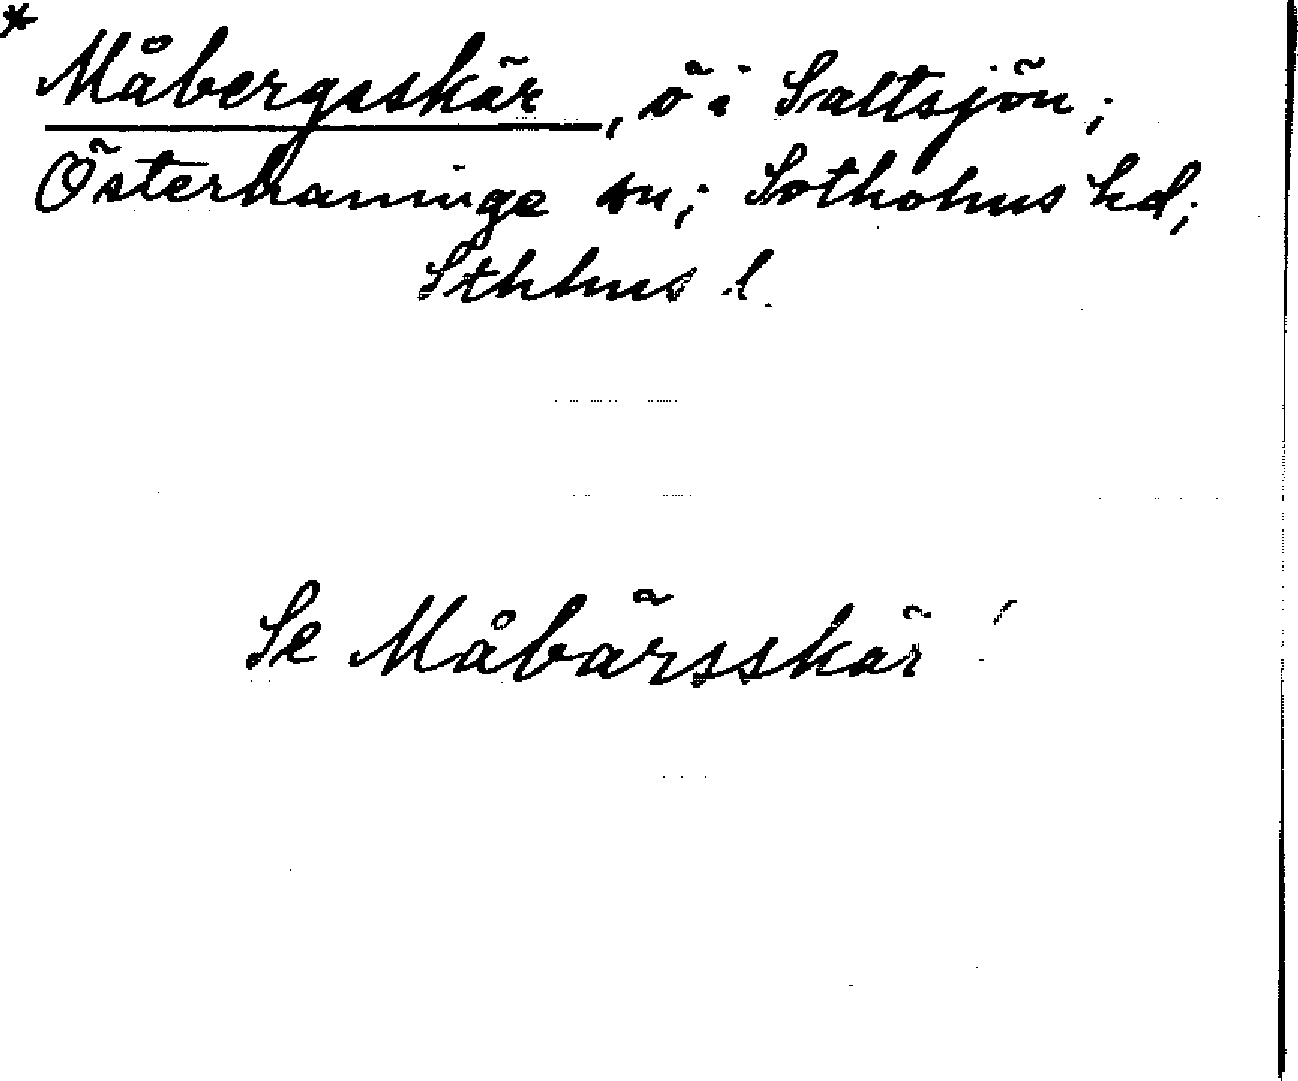 * Måbergsskär, ö i Saltsjön;
Österhaninge sn; Sotholms hd;
Sthlms l.
Se Måbärsskär!